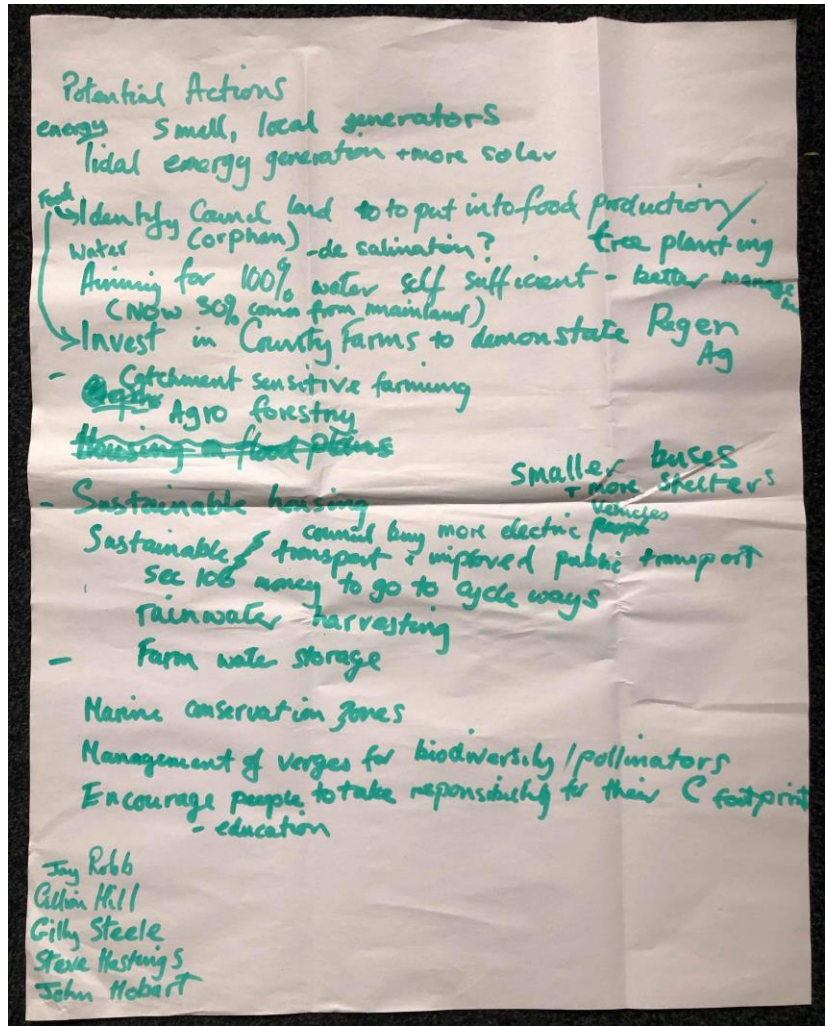 Potential Actions
energy small, local generators
Tidal energy generation + more solar
Food
Identify Council land to to put into food production/
Water (orphan) - de salination? tree planting
Aiming for 100% water self sufficient - better manage
(NOW 30% comes from mainland)
Invest in County Farms to demonstate Regen
Ag
- Catchment sensitive farming
Agro forestry
Housing on flood plains
smaller buses
+ more shelters
- Sustainable housing
vehicles
council buy more electric people
Sustainable / transport + improved public transport
Sec 106 money to go to cycle ways
rainwater harvesting
- Farm water storage
Marine conservation zones
Management of verges for biodiversity / pollinators
Encourage people to take reponsibility for their C footprint
- education
Jay Robb
Gillian Hill
Gilly Steele
Steve Hastings
John Hobart